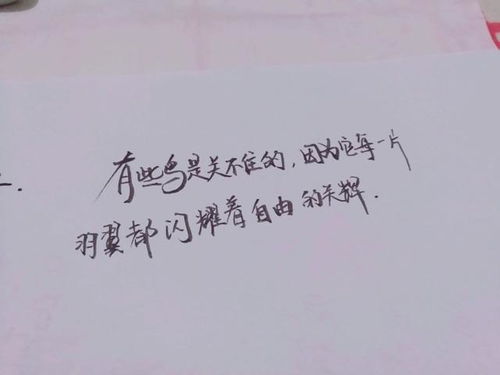 有些鸟是关不住的,因为它每一片
羽翼都闪耀着自由的光辉.